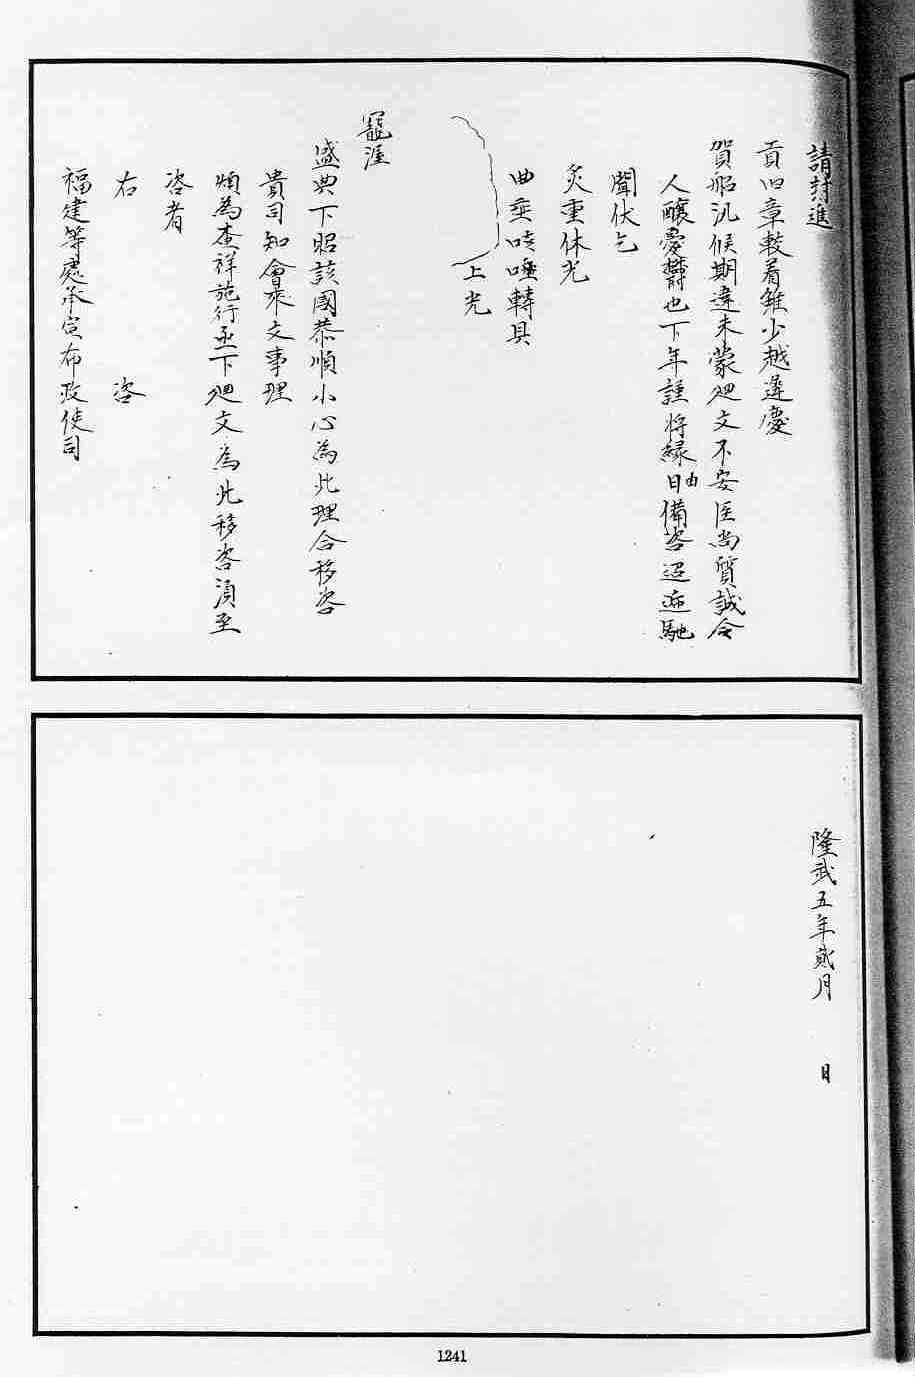 請封進
貢旧章較著雖少越違慶
賀船汛候期違未蒙廻文不安匡尚質誠令
人釀憂欝也下年謹将緣由日備咨迢逓馳
聞伏乞
炙重休光
曲垂咳唾轉具
上光
寵渥
盛典下昭該國恭順小心為此理合移咨
貴司知會來文事理
煩為查祥施行丕下廻文為此移咨湏至
咨者
右 咨
福建等處承宣布政使司
隆武五年貳月 日
1241